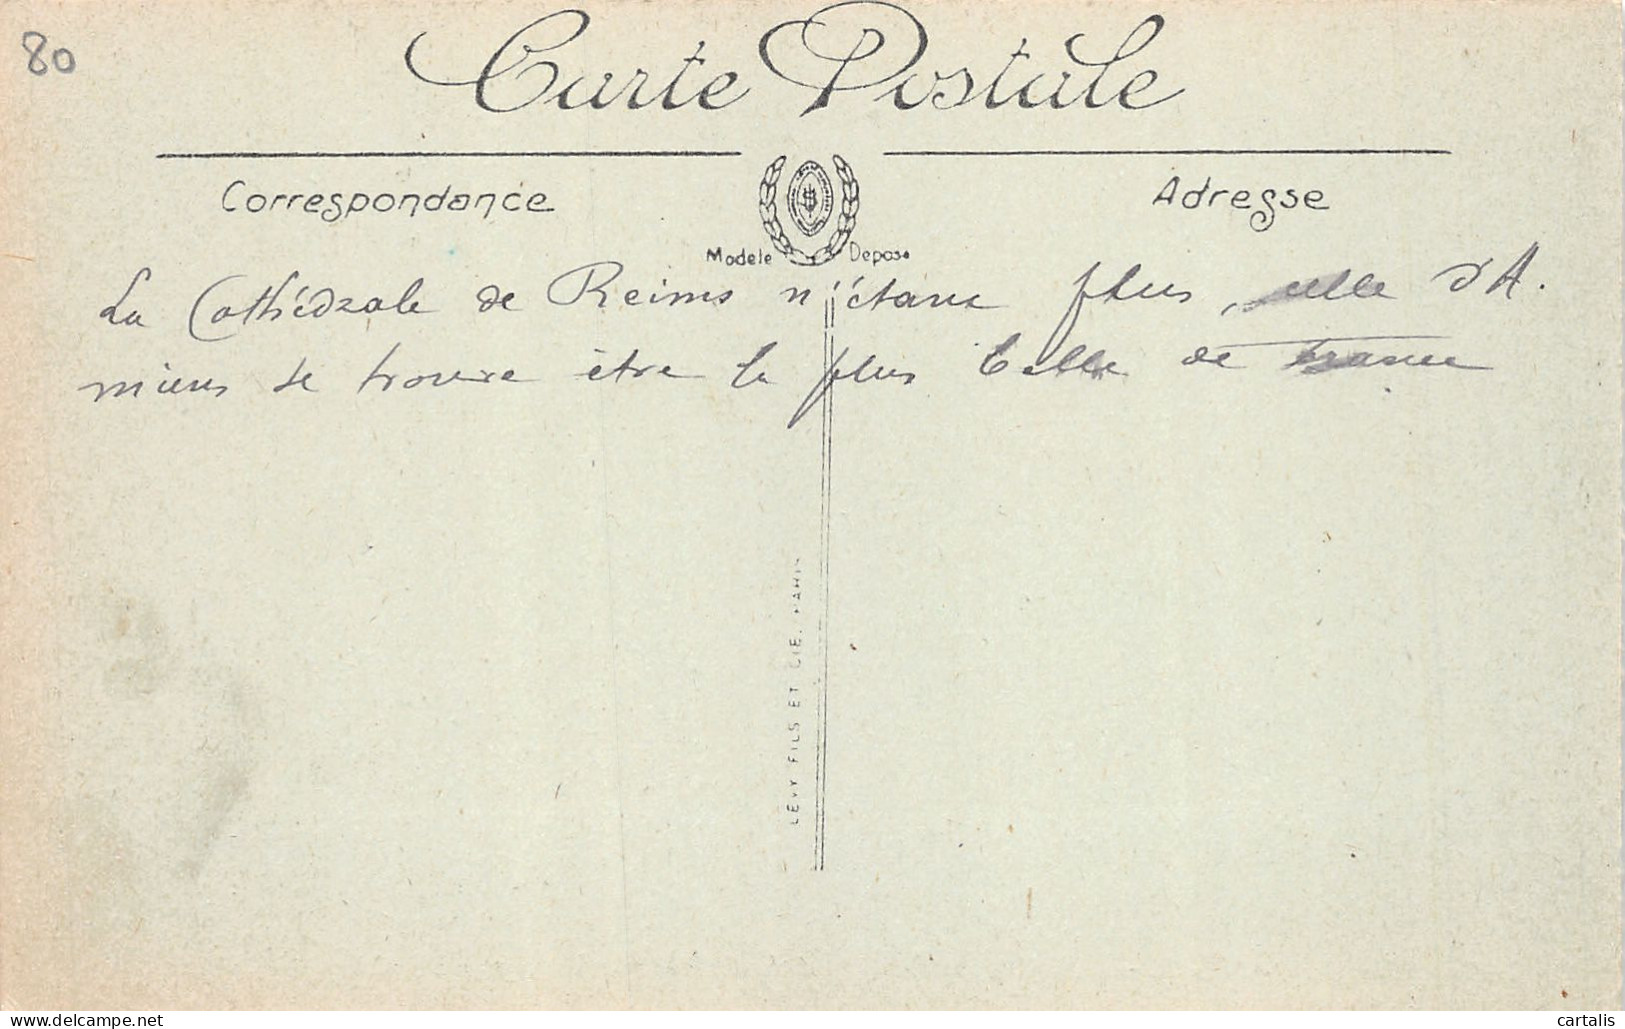 80
Carte Postale
Correspondance
Adresse
Modèle Déposé
La Cathédrale de Reims n'étant plus, celle d'A.
miens se trouve être la plus belle de France
LÉVY FILS ET CIE, PARIS
cartalis